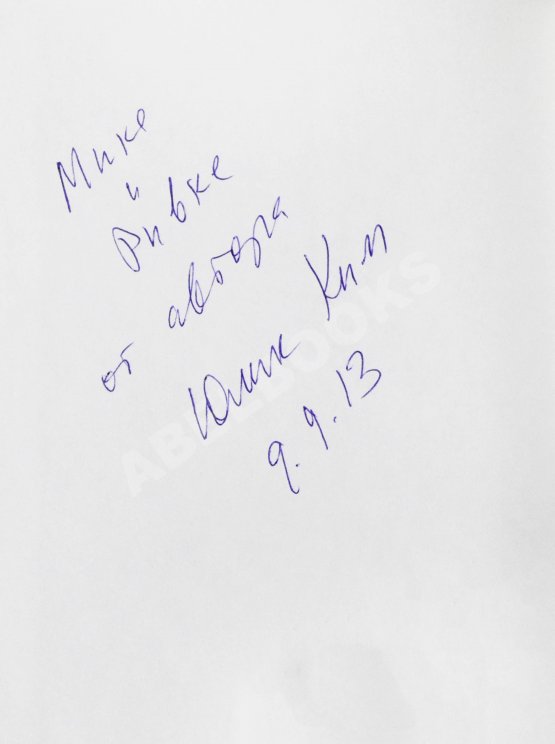 Мике
и
Ривке
от автора
Юлик Ким
9.9.13
ABLEBOOKS